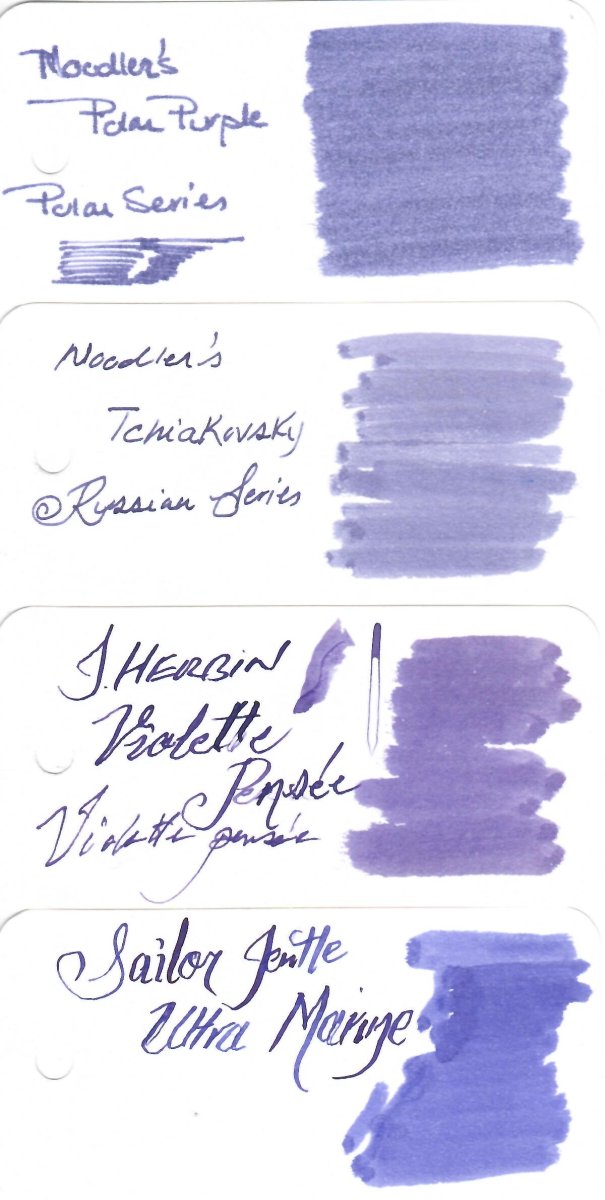 Noodler's
Polar Purple
Polar Series
Noodler's
Tchiakovsky
Russian Series
J. HERBIN
Violette
Pensée
Violette pensée
Sailor Jentle
Ultra Marine